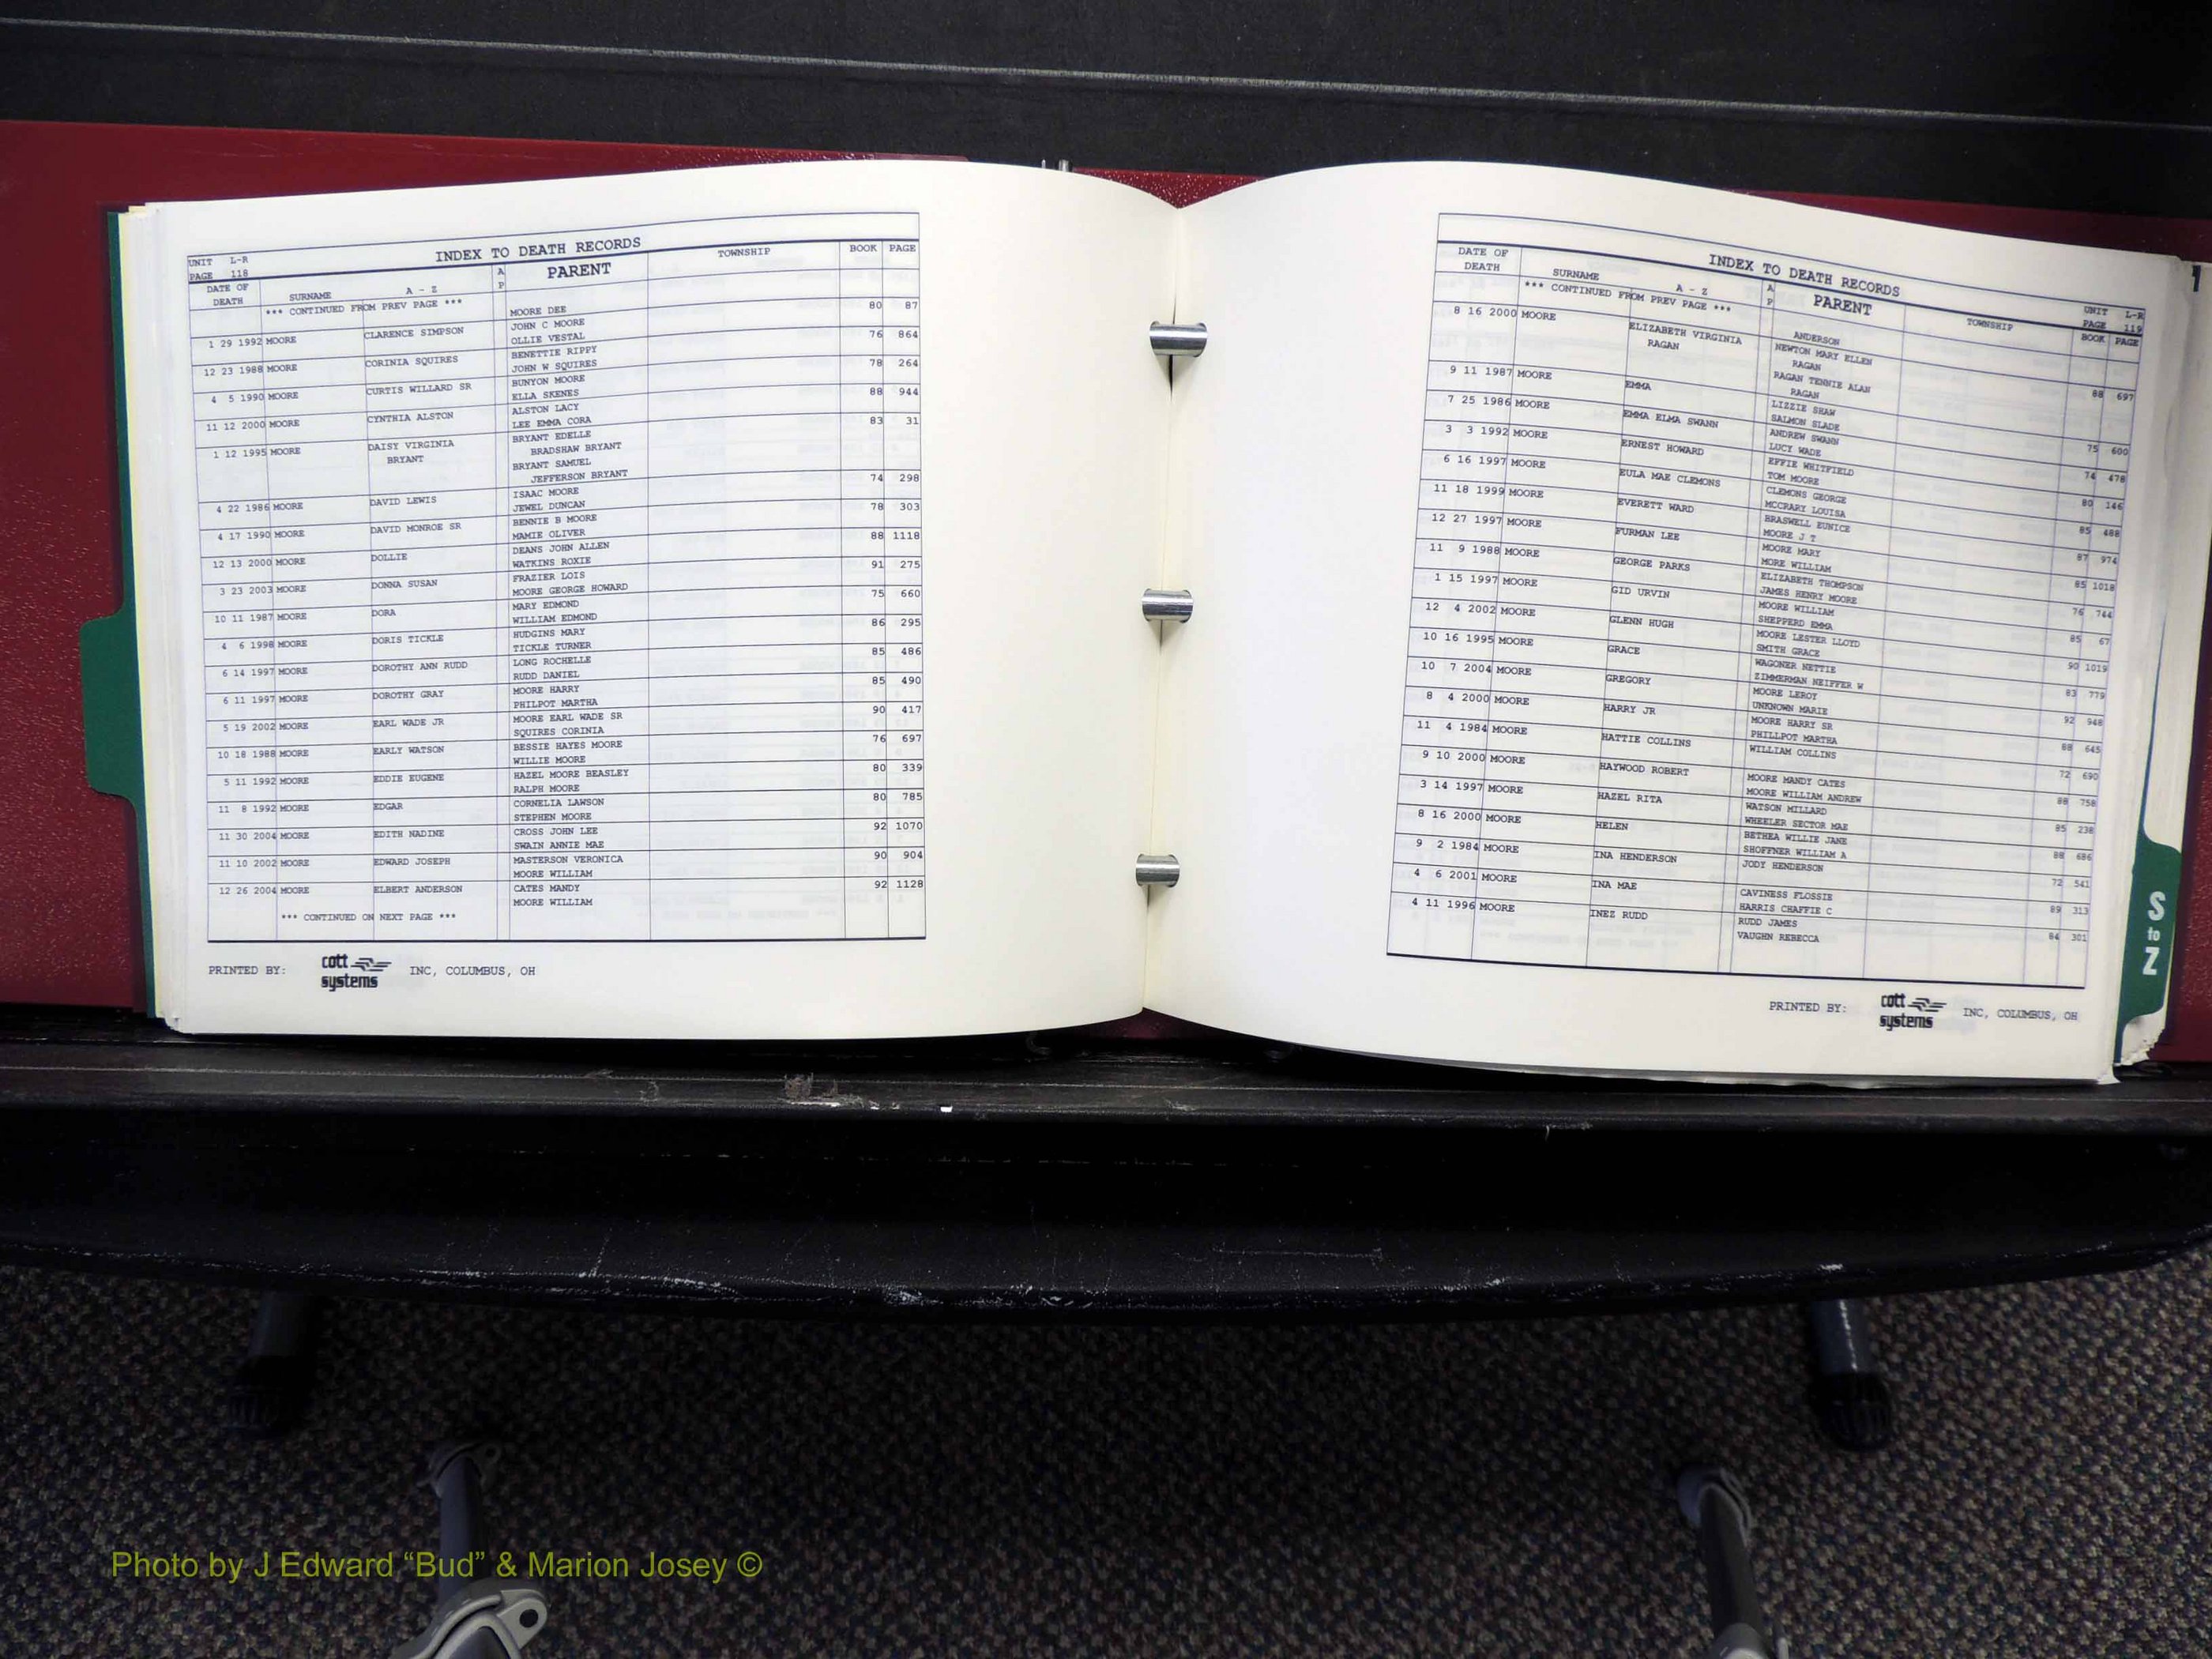 INDEX TO DEATH RECORDS
UNIT L-R
PAGE 118
DATE OF DEATH SURNAME A - Z A P PARENT TOWNSHIP BOOK PAGE
*** CONTINUED FROM PREV PAGE ***
MOORE DEE 80 87
1 29 1992 MOORE CLARENCE SIMPSON JOHN C MOORE 76 864
OLLIE VESTAL
12 23 1988 MOORE CORINIA SQUIRES BENETTIE RIPPY 78 264
JOHN W SQUIRES
4 5 1990 MOORE CURTIS WILLARD SR BUNYON MOORE 88 944
ELLA SKENES
11 12 2000 MOORE CYNTHIA ALSTON ALSTON LACY 83 31
LEE EMMA CORA
1 12 1995 MOORE DAISY VIRGINIA BRYANT EDELLE
BRYANT BRADSHAW BRYANT
BRYANT SAMUEL
JEFFERSON BRYANT 74 298
4 22 1986 MOORE DAVID LEWIS ISAAC MOORE
JEWEL DUNCAN 78 303
4 17 1990 MOORE DAVID MONROE SR BENNIE B MOORE
MAMIE OLIVER 88 1118
12 13 2000 MOORE DOLLIE DEANS JOHN ALLEN
WATKINS ROXIE 91 275
3 23 2003 MOORE DONNA SUSAN FRAZIER LOIS
MOORE GEORGE HOWARD 75 660
10 11 1987 MOORE DORA MARY EDMOND
WILLIAM EDMOND 86 295
4 6 1998 MOORE DORIS TICKLE HUDGINS MARY
TICKLE TURNER 85 486
6 14 1997 MOORE DOROTHY ANN RUDD LONG ROCHELLE
RUDD DANIEL 85 490
6 11 1997 MOORE DOROTHY GRAY MOORE HARRY
PHILPOT MARTHA 90 417
5 19 2002 MOORE EARL WADE JR MOORE EARL WADE SR
SQUIRES CORINIA 76 697
10 18 1988 MOORE EARLY WATSON BESSIE HAYES MOORE
WILLIE MOORE 80 339
5 11 1992 MOORE EDDIE EUGENE HAZEL MOORE BEASLEY
RALPH MOORE 80 785
11 8 1992 MOORE EDGAR CORNELIA LAWSON
STEPHEN MOORE 92 1070
11 30 2004 MOORE EDITH NADINE CROSS JOHN LEE
SWAIN ANNIE MAE 90 904
11 10 2002 MOORE EDWARD JOSEPH MASTERSON VERONICA
MOORE WILLIAM 92 1128
12 26 2004 MOORE ELBERT ANDERSON CATES MANDY
MOORE WILLIAM
*** CONTINUED ON NEXT PAGE ***
PRINTED BY: cott systems INC, COLUMBUS, OH
INDEX TO DEATH RECORDS
UNIT L-R
PAGE 119
DATE OF DEATH SURNAME A - Z A P PARENT TOWNSHIP BOOK PAGE
*** CONTINUED FROM PREV PAGE ***
ANDERSON
8 16 2000 MOORE ELIZABETH VIRGINIA NEWTON MARY ELLEN
RAGAN RAGAN
RAGAN TENNIE ALAN
RAGAN 88 697
9 11 1987 MOORE EMMA LIZZIE SHAW
SALMON SLADE 75 600
7 25 1986 MOORE EMMA ELMA SWANN ANDREW SWANN
LUCY WADE 74 478
3 3 1992 MOORE ERNEST HOWARD EFFIE WHITFIELD
TOM MOORE 80 146
6 16 1997 MOORE EULA MAE CLEMONS CLEMONS GEORGE
MCCRARY LOUISA 85 488
11 18 1999 MOORE EVERETT WARD BRASWELL EUNICE
MOORE J T 87 974
12 27 1997 MOORE FURMAN LEE MOORE MARY
MORE WILLIAM 85 1018
11 9 1988 MOORE GEORGE PARKS ELIZABETH THOMPSON
JAMES HENRY MOORE 76 744
1 15 1997 MOORE GID URVIN MOORE WILLIAM
SHEPPERD EMMA 85 67
12 4 2002 MOORE GLENN HUGH MOORE LESTER LLOYD
SMITH GRACE 90 1019
10 16 1995 MOORE GRACE WAGONER NETTIE
ZIMMERMAN NEIFFER W 83 779
10 7 2004 MOORE GREGORY MOORE LEROY
UNKNOWN MARIE 92 948
8 4 2000 MOORE HARRY JR MOORE HARRY SR
PHILLPOT MARTHA 88 645
11 4 1984 MOORE HATTIE COLLINS WILLIAM COLLINS
72 690
9 10 2000 MOORE HAYWOOD ROBERT MOORE MANDY CATES
MOORE WILLIAM ANDREW 88 758
3 14 1997 MOORE HAZEL RITA WATSON MILLARD
WHEELER SECTOR MAE 85 238
8 16 2000 MOORE HELEN BETHEA WILLIE JANE
SHOFFNER WILLIAM A 88 686
9 2 1984 MOORE INA HENDERSON JODY HENDERSON
72 541
4 6 2001 MOORE INA MAE CAVINESS FLOSSIE
HARRIS CHAFFIE C 89 313
4 11 1996 MOORE INEZ RUDD RUDD JAMES
VAUGHN REBECCA 84 301
PRINTED BY: cott systems INC, COLUMBUS, OH
S
to
Z
Photo by J Edward “Bud” & Marion Josey ©